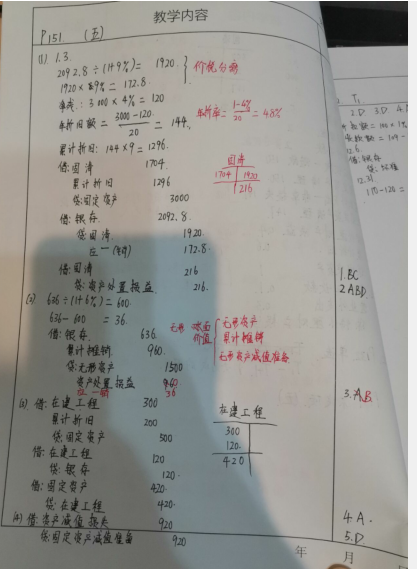 教学内容
P151 (五)
(1) 1.3.
2092.8÷(1+9%)= 1920.
1920×9%= 172.8
价税分离
净残: 3000×4%=120
年折旧额= 3000-120 / 20 = 144.
年折率= 1-4% / 20 = 4.8%
累计折旧: 144×9=1296.
借:固清 1704.
累计折旧 1296
贷:固定资产 3000
固清
1704 1920
216
借:银存. 2092.8.
贷:固清. 1920.
应 — (销) 172.8.
借:固清 216
贷:资产处置损益. 216.
(2) 636÷(1+6%)=600.
636-600 = 36.
借:银存. 636.
累计摊销. 960.
贷:无形资产 1500
资产处置损益
应—销 36
无形 账面价值
无形资产
累计摊销
无形资产减值准备
(3) 借:在建工程 300
累计折旧 200
贷:固定资产 500
借:在建工程 120
贷:银存 120.
借:固定资产 420.
贷:在建工程 420.
在建工程
300
120.
420
(4) 借:资产减值损失 920
贷:固定资产减值准备 920
T1
2.D 3.D
借:银存
12.31
110-120=
1.BC
2ABD.
3.AB
4A.
5.D
年 月